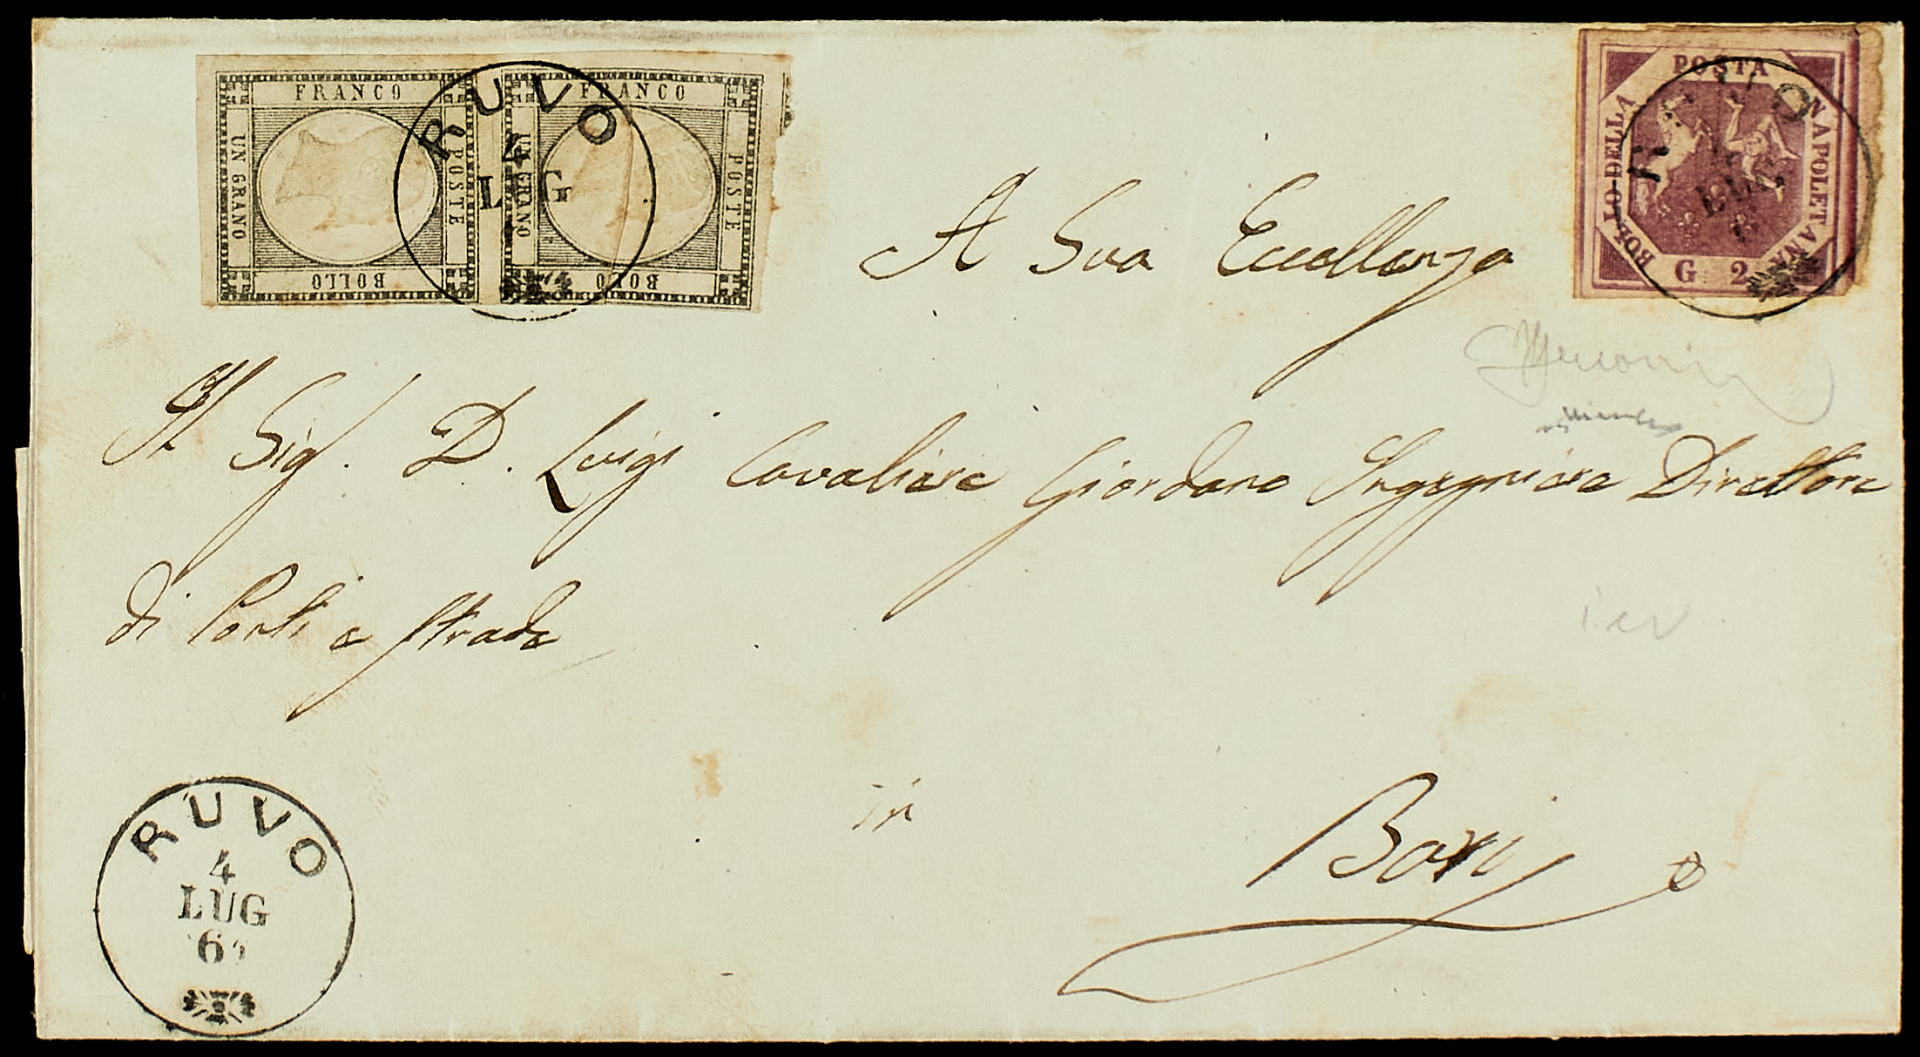 FRANCO
UN GRANO
POSTE
BOLLO
FRANCO
UN GRANO
POSTE
BOLLO
RUVO
4
LUG
POSTA
NAPOLETANA
BOLLO DELLA
G 2
RUVO
LUG
A Sua Eccellenza
Il Sig. D. Luigi Cavaliere Giordano Ingegniere Direttore
di Ponti e strade
in
Bari
RUVO
4
LUG